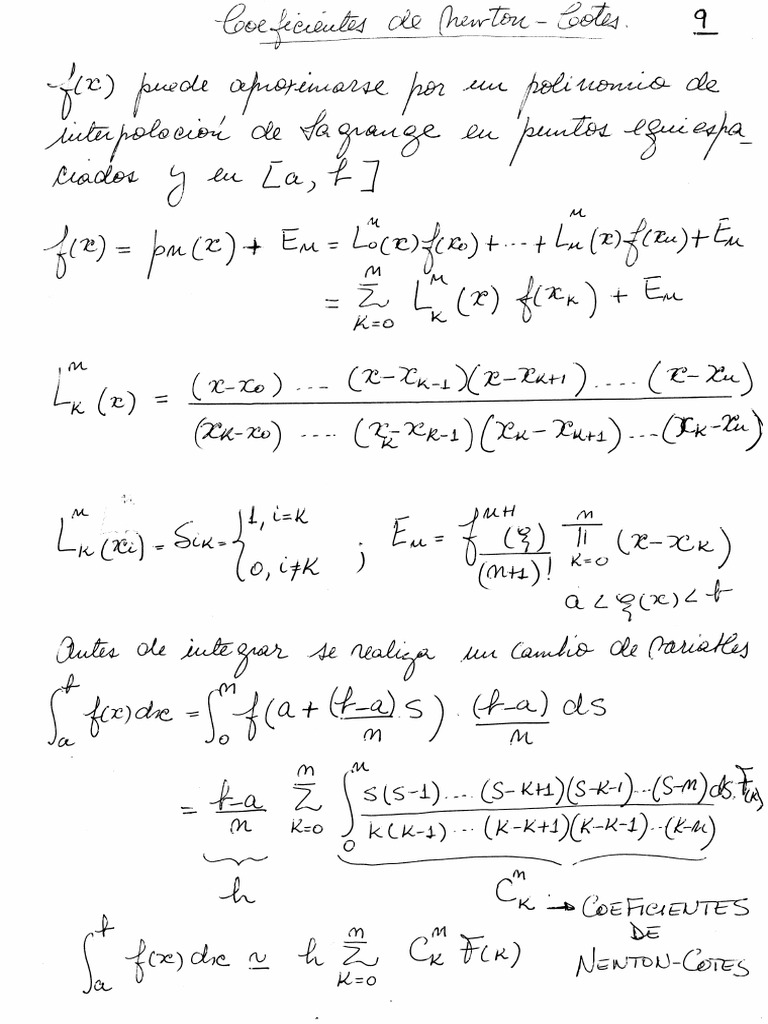 Coeficientes de Newton-Cotes. 9
f(x) puede aproximarse por un polinomio de
interpolación de Lagrange en puntos equiespa_
ciados y en [a, b]
f(x) = pn(x) + En = L₀ⁿ(x)f(x₀) + ... + Lₙⁿ(x)f(xₙ) + En
= Σ_{K=0}^{n} L_K^n (x) f(x_K) + En
L_K^n (x) = (x-x₀) .... (x-x_{K-1})(x-x_{K+1}) ..... (x-xₙ) / (x_K-x₀) .... (x_K-x_{K-1})(x_K-x_{K+1}) ... (x_K-xₙ)
L_K^n (x_i) = δ_{iK} = { 1, i=K ; 0, i≠K ; En = f^{n+1}(ξ) / (n+1)! ∏_{K=0}^{n} (x-x_K)
a < ξ(x) < b
Antes de integrar se realiza un cambio de variables
∫_a^b f(x)dx = ∫_0^n f(a + (b-a)/n s) . (b-a)/n ds
= b-a/n Σ_{K=0}^{n} ∫_0^n s(s-1) .... (s-K+1)(s-K-1) ... (s-n) / K(K-1) ... (K-K+1)(K-K-1) ... (K-n) ds. F(K)
h C_K^n → COEFICIENTES
DE
∫_a^b f(x)dx ≃ h Σ_{K=0}^{n} C_K^n F(K) NEWTON-COTES